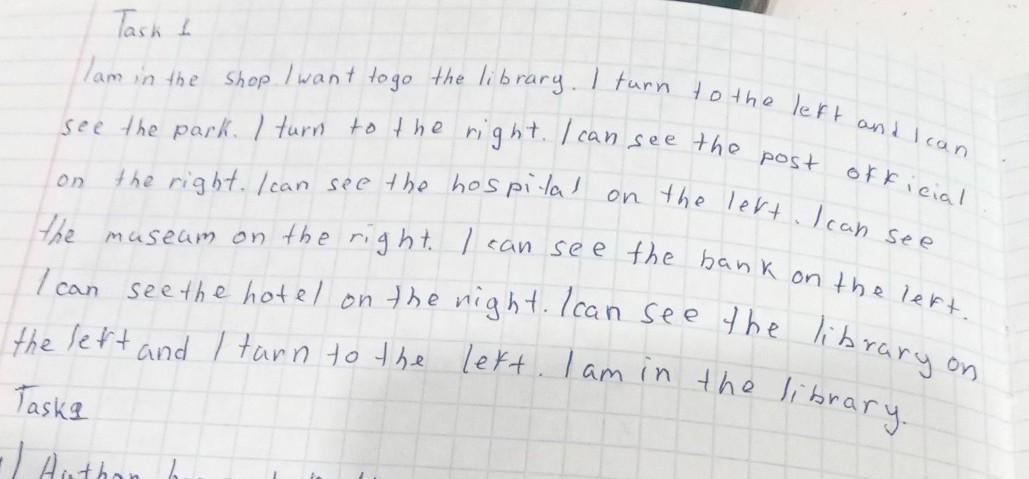 Task 1
I am in the shop. I want to go the library. I turn to the left and I can
see the park. I turn to the right. I can see the post official
on the right. I can see the hospital on the left. I can see
the museam on the right. I can see the bank on the left.
I can see the hotel on the right. I can see the library on
the left and I turn to the left. I am in the library.
Task 2
1) Author